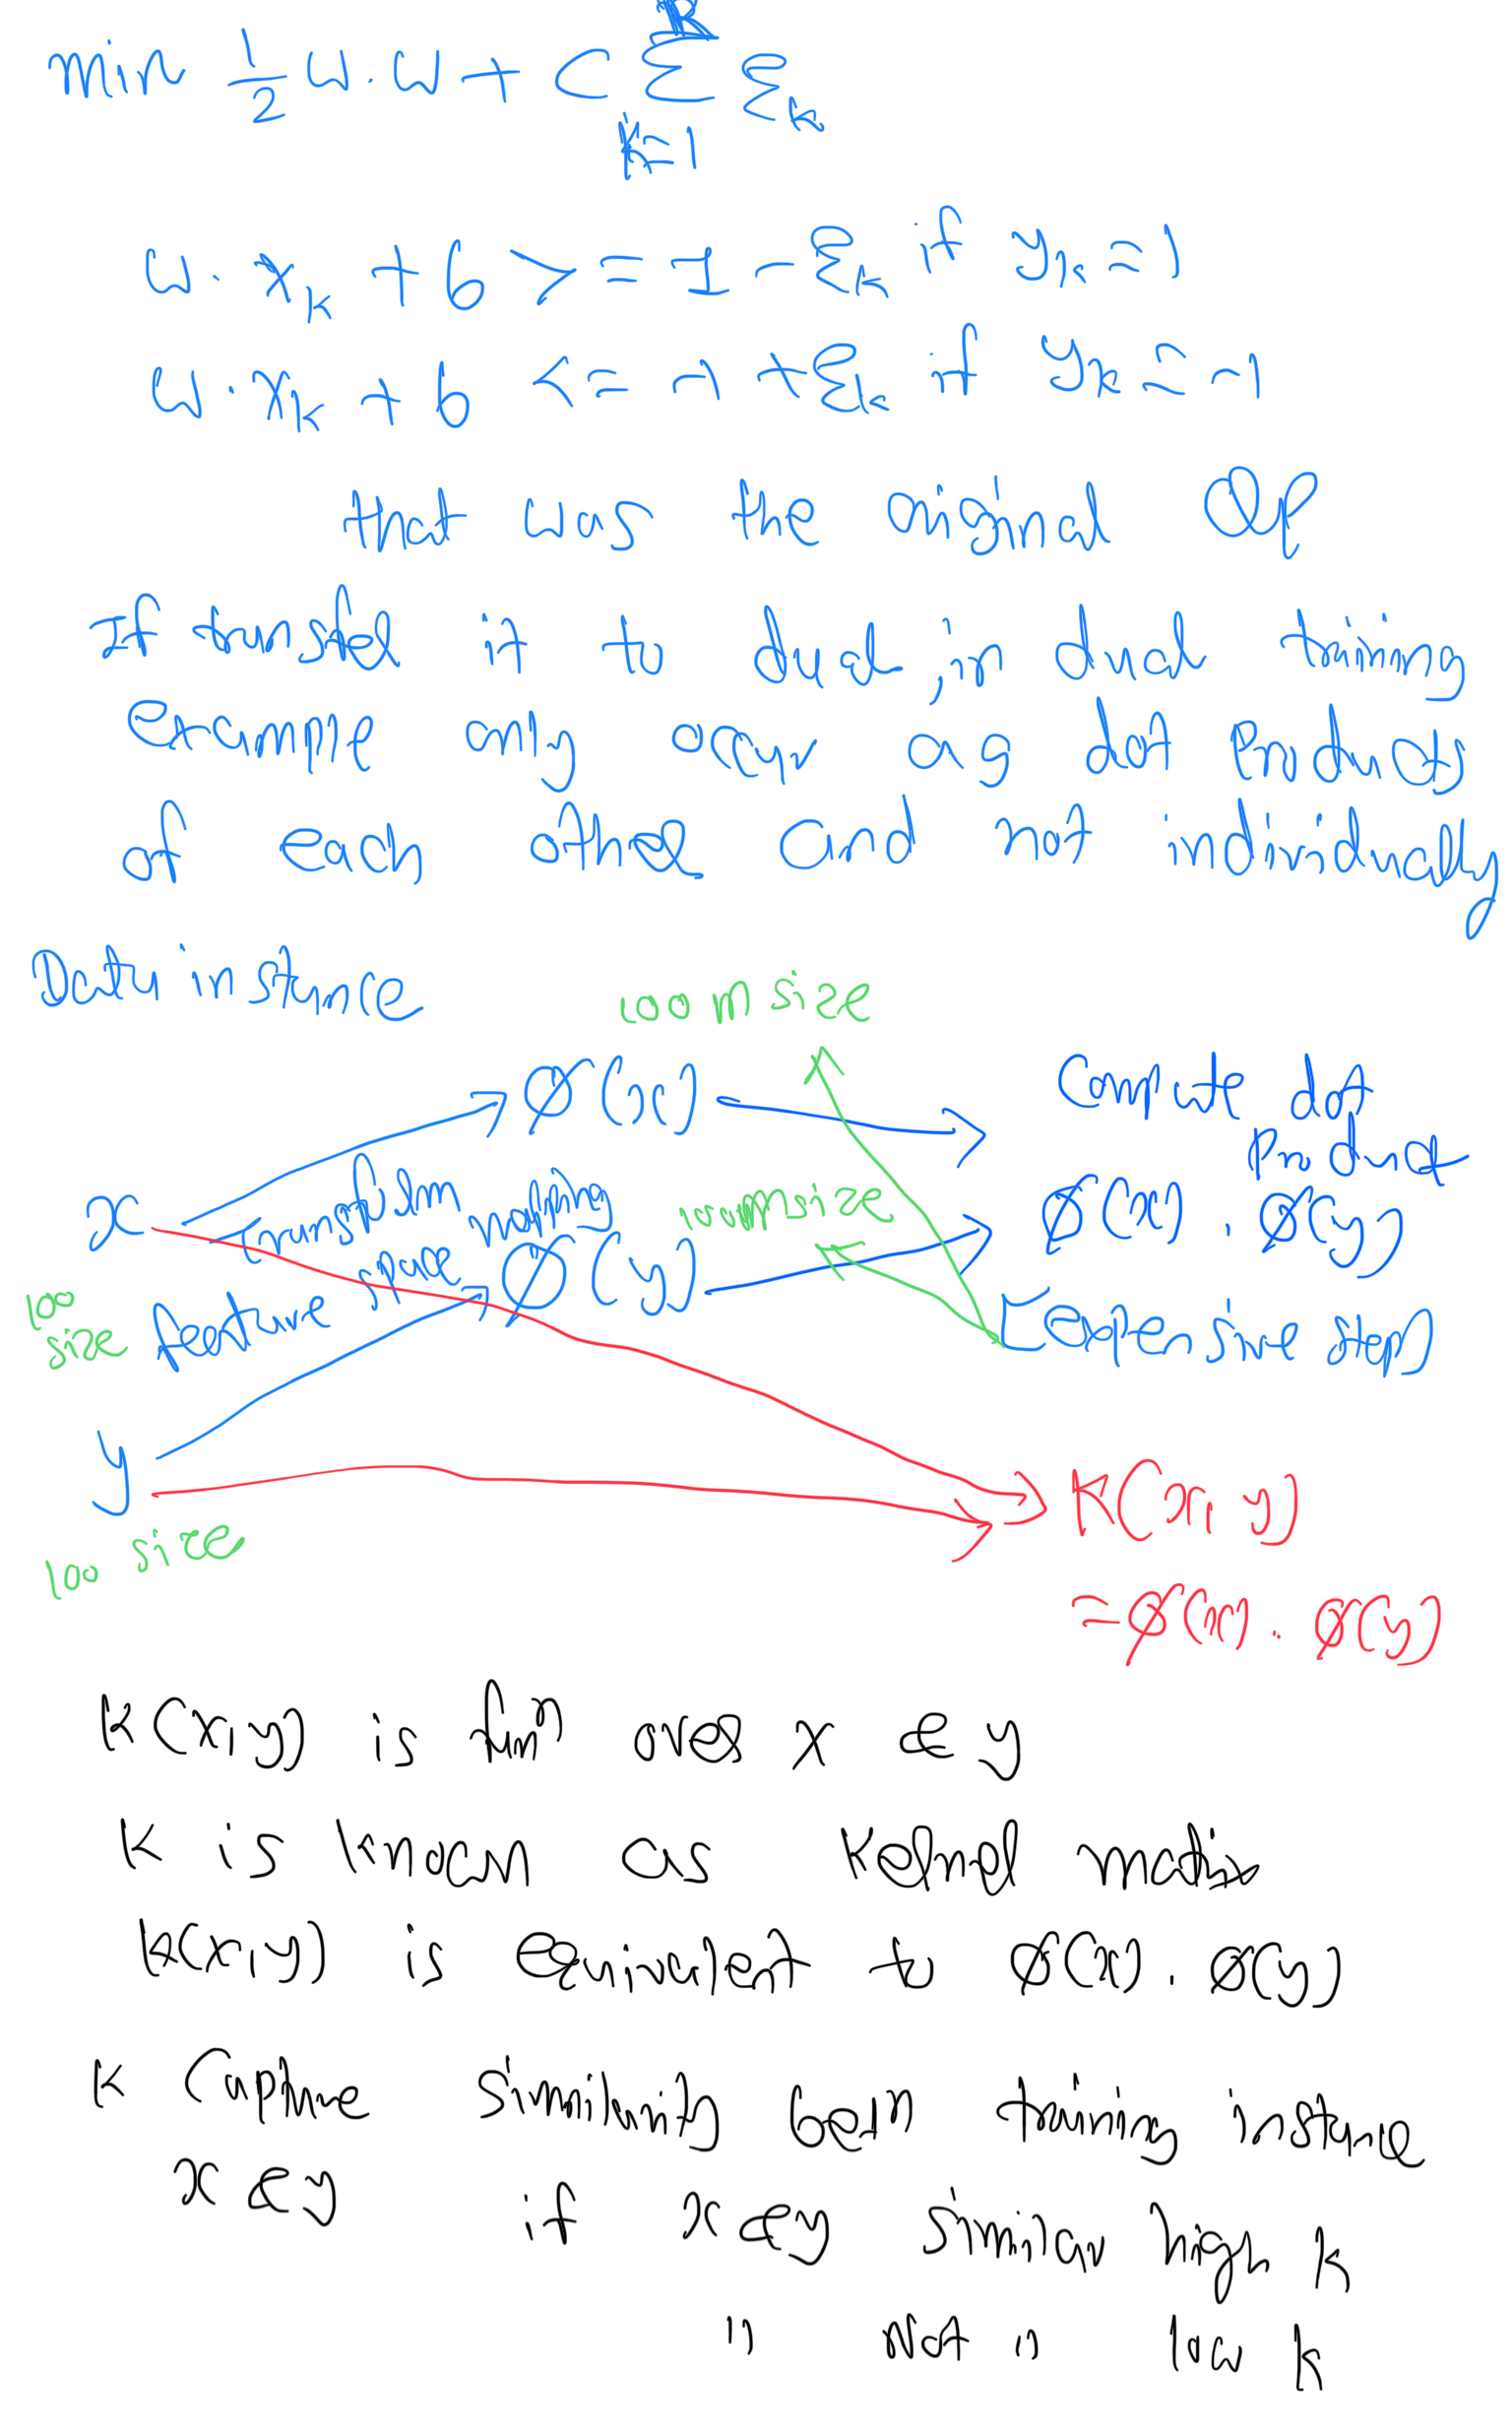 min 1/2 w.w + C Σ ε_k
k=1
w.x_k + b >= 1 - ε_k if y_k = 1
w.x_k + b <= -1 + ε_k if y_k = -1
that was the original QP
If transfer it to dual, in dual training
example only occur as dot products
of each other and not individually
Data instance
1000 m size
x
Ø(x)
Compute dot
Product
transform into higher
feature space
Ø(y)
Ø(x), Ø(y)
100 m size
100
size
Expensive step
y
100 size
K(x, y)
= Ø(x). Ø(y)
K(x, y) is fun over x & y
K is known as kernel matrix
K(x, y) is equivalent to Ø(x). Ø(y)
K capture similarity betn training instance
x & y if x & y similar high k
" not " low k